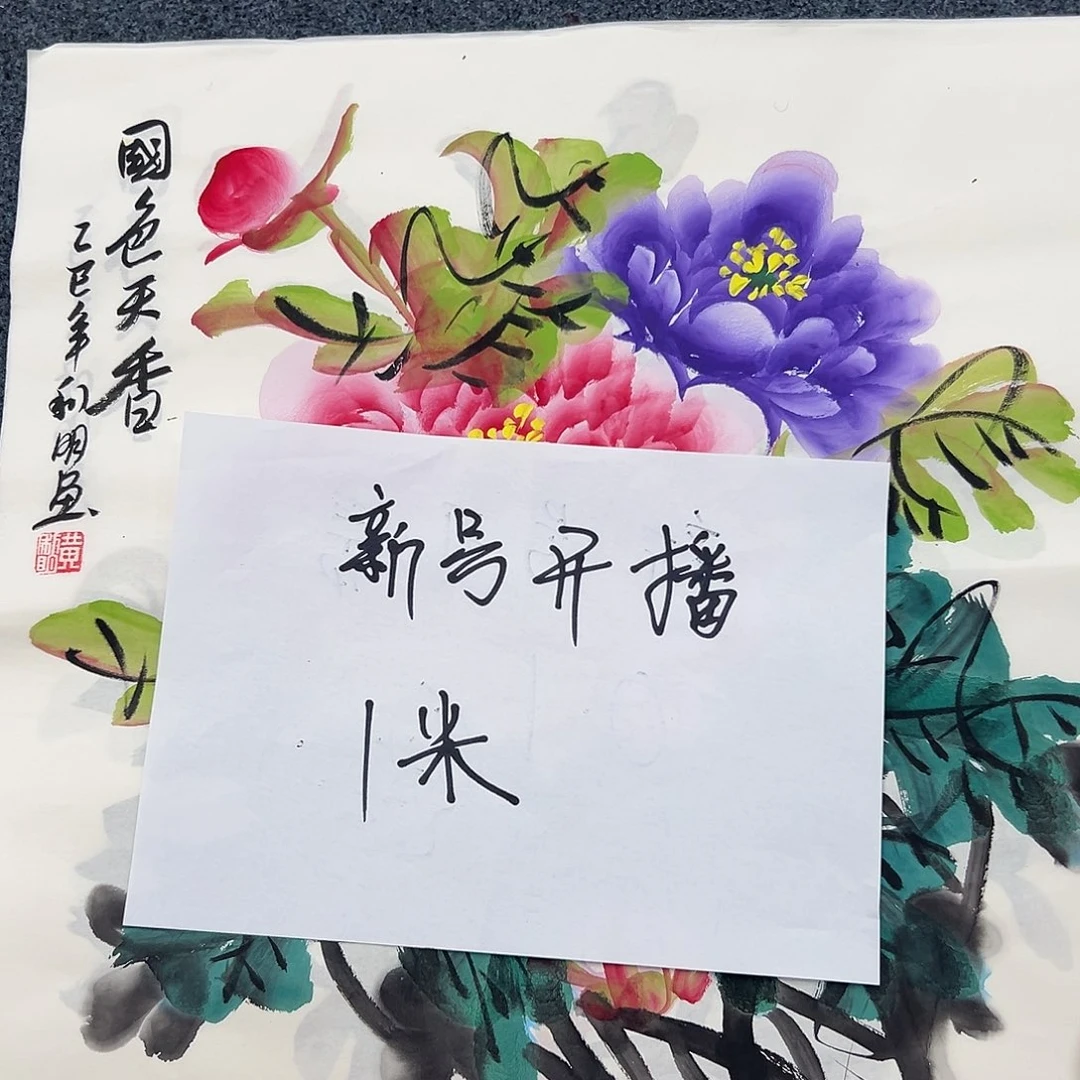 國色天香
乙巳年利明画
新号开播
1米